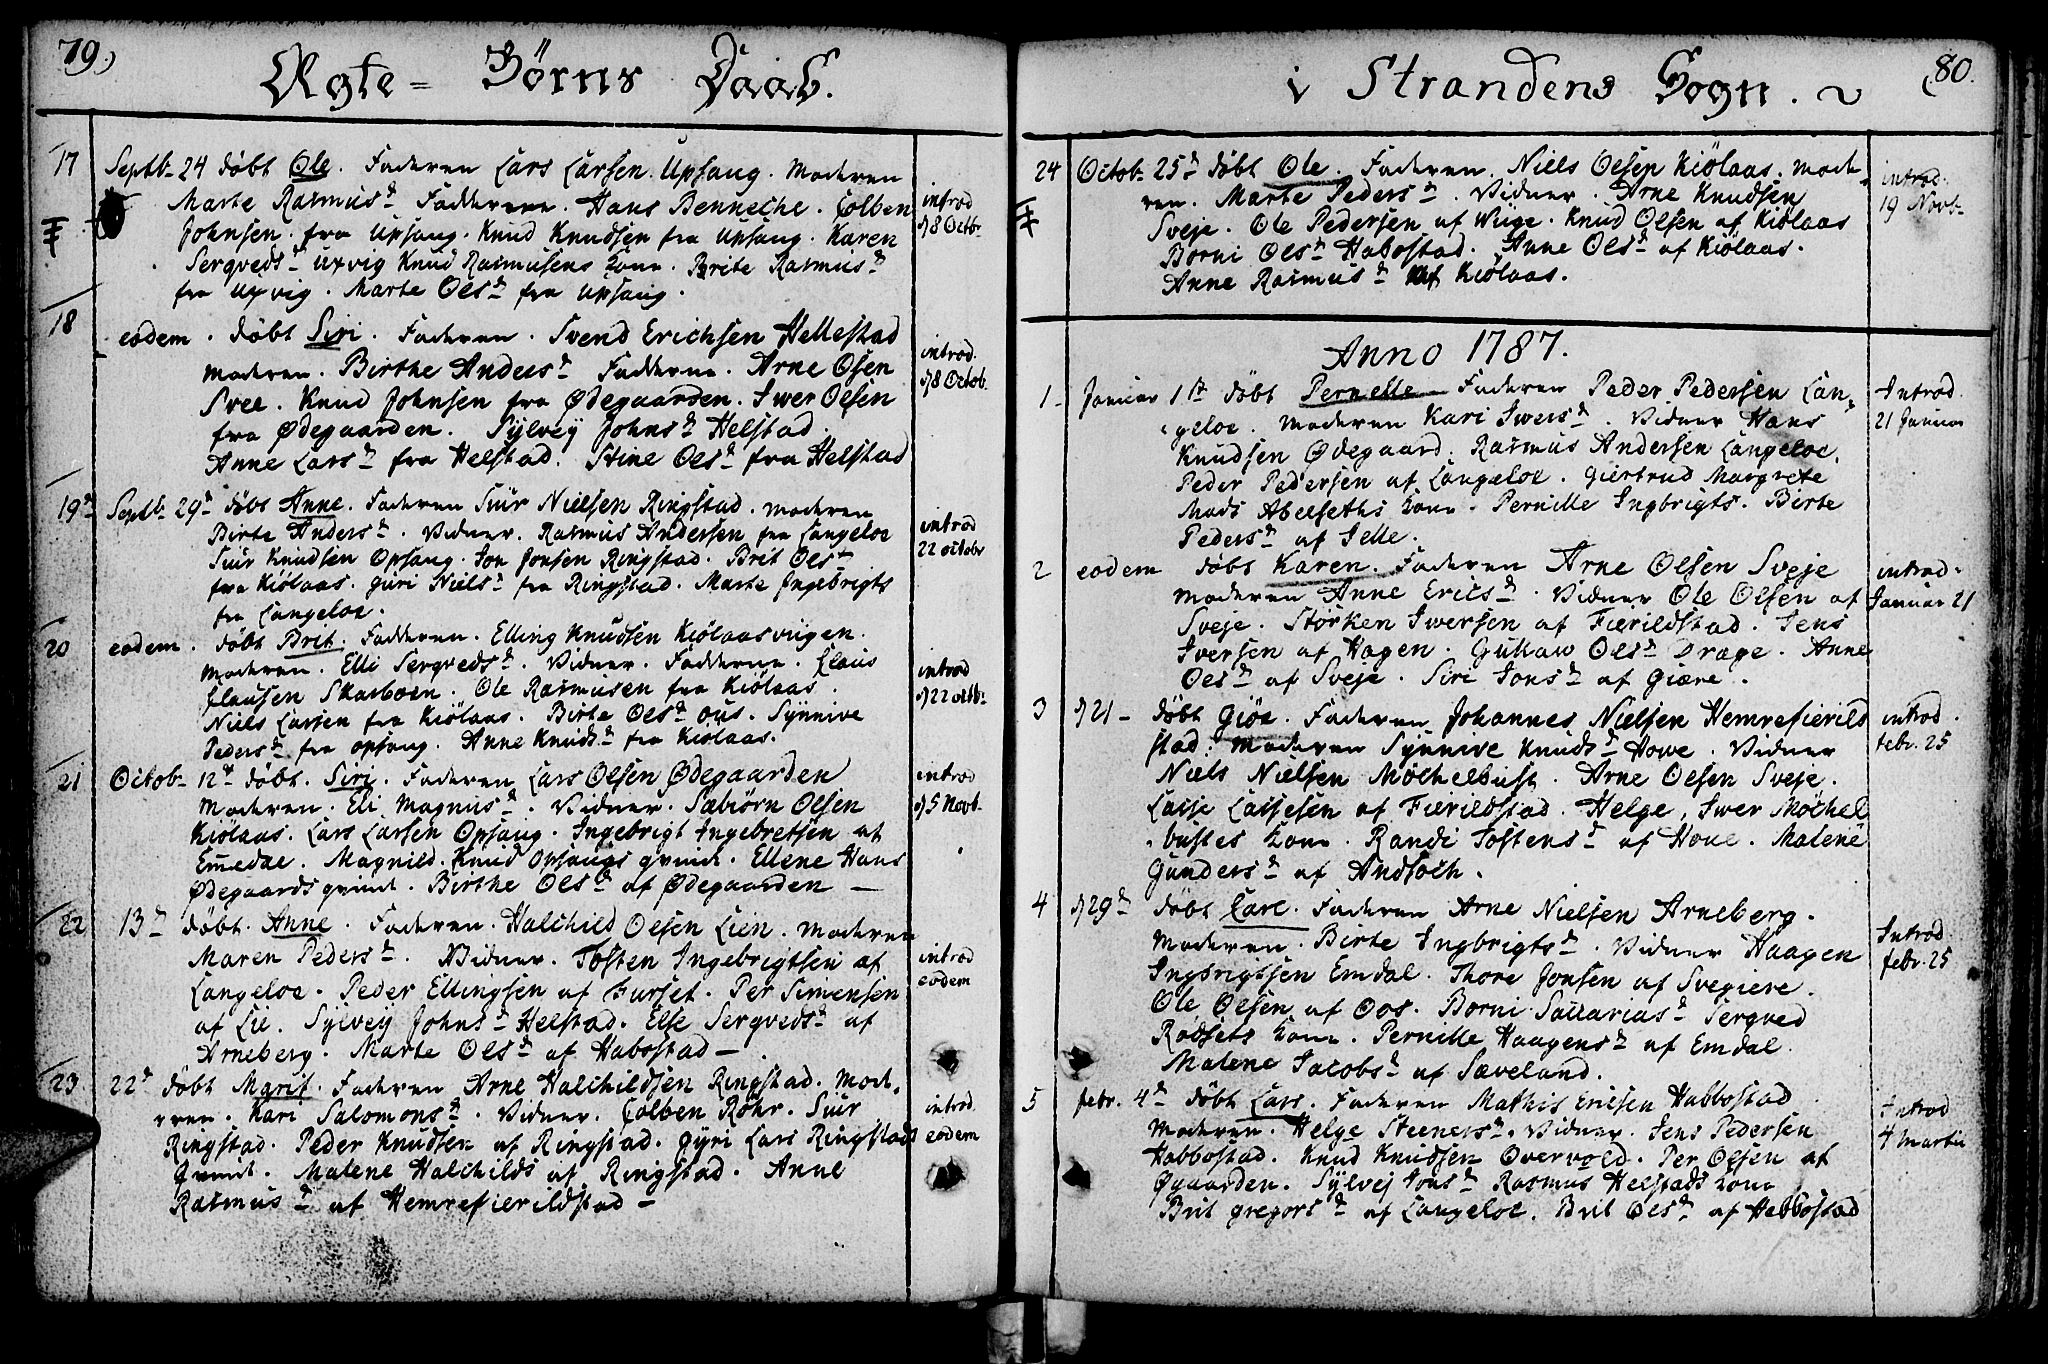 79.)
Ægte = Börns Daab.
17 Septb. 24 döbt Ole. Faderen Lars Larsen Upsang. Moderen
Marte Rasmusd Faddrene. Hans Benneche. Colben
introd
d 8 Octb.
Johnsen fra Upsang. Knud Knudsen fra Upsang. Karen
Sergvedsd Uxvig Knud Rasmusens Kone. Brite Rasmusd
fra Uxvig. Marte Olsd fra Upsang.
18 eodem. döbt Siri. Faderen. Svend Erichsen Hellestad
Moderen. Birthe Andersd Faddrene. Arne Olsen
introd.
d 8 Octob.
Svee. Knud Johnsen fra Ødegaarden. Iwer Olsen
fra Ødegaarden. Sylvey Johnsd Helstad.
Anne Larsd fra Helstad. Stine Olsd fra Helstad
19d Septb. 29d döbt Anne. Faderen Siur Nielsen Ringstad. Moderen
Birte Andersd. Vidner. Rasmus Andersen fra Langeloe
introd
22 octobr
Siur Knudsen Opsang. Jon Jonsen Ringstad. Brit Olsd
fra Kiölaas. Guri Nielsd fra Ringstad. Marte Ingebrigts
fra Langeloe.
20 eodem. döbt Brit. Faderen. Elling Knudsen Kiölaasviigen.
Moderen. Elli Sergvedsd. Vidner. Faddrene. Claus
introd
d 22 octb.
Clausen Skarboen. Ole Rasmusen fra Kiölaas.
Niels Larsen fra Kiölaas. Birte Olsd Ous. Synnive
Pedersd fra Opsang. Anne Knudsd fra Kiölaas.
21 Octob. 12d döbt. Siri. Faderen Lars Olsen Ødegaarden
Moderen. Eli Magnusd. Vidner. Sæbiörn Olsen
introd
d 5 Novb.
Kiölaas. Lars Larsen Opsang. Ingebrigt Ingebretsen af
Emedal. Magnild. Knud Opsangs qvinde. Ellene Hans
Ødegaards qvinde. Birthe Olsd af Ødegaarden —
22 13d döbt. Anne. Faderen. Halchild Olsen Lien. Moderen
Maren Pedersd. Vidner. Tosten Ingebrigtsen af
introd
eodem
Langeloe. Peder Ellingsen af Furset. Per Simensen
af Lie. Sylvey Johnsd Helstad. Else Sergvedsd af
Arneberg. Marte Olsd af Habostad —
23 22d döbt Marit. Faderen Arne Halchildsen Ringstad. Mod-
eren. Kari Salomonsd. Vidner. Colben Röhr. Siur
introd.
eodem
Ringstad. Peder Knudsen af Ringstad. Gyri Lars Ringstads
Qvinde. Malene Halchilds af Ringstad. Anne
Rasmusd af Hemrefierildstad —
i Strandens Sogn.
80.
24 Octob. 25d döbt Ole. Faderen. Niels Olsen Kiölaas. Mode-
ren. Marte Pedersd. Vidner. Arne Knudsen
introd.
19 Novb.
Sveje. Ole Pedersen af Wiige. Knud Olsen af Kiölaas
Borni Olsd Habostad. Anne Olsd af Kiölaas.
Anne Rasmusd af Kiölaas.
Anno 1787.
1 Januar 1st döbt Pernelle Faderen Peder Pedersen Lan-
geloe. Moderen Kari Iwersd. Vidner Hans
Introd.
21 Januar
Knudsen Ødegaard. Rasmus Andersen Langeloe.
Peder Pedersen af Langeloe. Giertrud Margrete
Mads Abelseths Kone. Pernille Ingbrigts. Birte
Pedersd af Selle.
2 eodem döbt Karen. Faderen Arne Olsen Sveje
Moderen Anne Ericsd. Vidner Ole Olsen af
introd.
Januar 21
Sveje. Störken Iwersen af Fierildstad. Jens
Iversen af Hagen. Gunhaw Olsd Drage. Anne
Olsd af Sveje. Siri Jonsd af Giære.
3 d 21 - döbt Giöe. Faderen Johannes Nielsen Hemrefierild
stad. Moderen Synnive Knudsd Howe. Vidner
introd.
febr. 25
Niels Nielsen Möchelbust. Arne Olsen Sveje.
Lasse Lassesen af Fierildstad. Helge, Iwer Möchel
bustes Kone. Randi Tostensd af Hove. Malene
Gundersd af Andsoch.
4 d 29d döbt Lars. Faderen Arne Nielsen Arneberg.
Moderen. Birte Ingbrigtsd. Vidner Haagen
Introd
febr. 25
Ingbrigssen Emdal. Thore Jonsen af Svegiere.
Ole Olsen af Oos. Borni Saccariasd Sergved
Rödsets Kone. Pernille Haagensd af Emdal.
Malene Jacobsd af Sæveland.
5 febr. 4d döbt Lars. Faderen Mathis Ericsen Habbostad
Moderen. Helge Steenersd. Vidner. Jens Pedersen
Introd
4 Martii
Habbostad. Knud Knudsen Overvold. Per Olsen af
Gaarden. Sylvej Jonsd Rasmus Helstads Kone
Brit Gregorsd af Langeloe. Brit Olsd af Habbostad